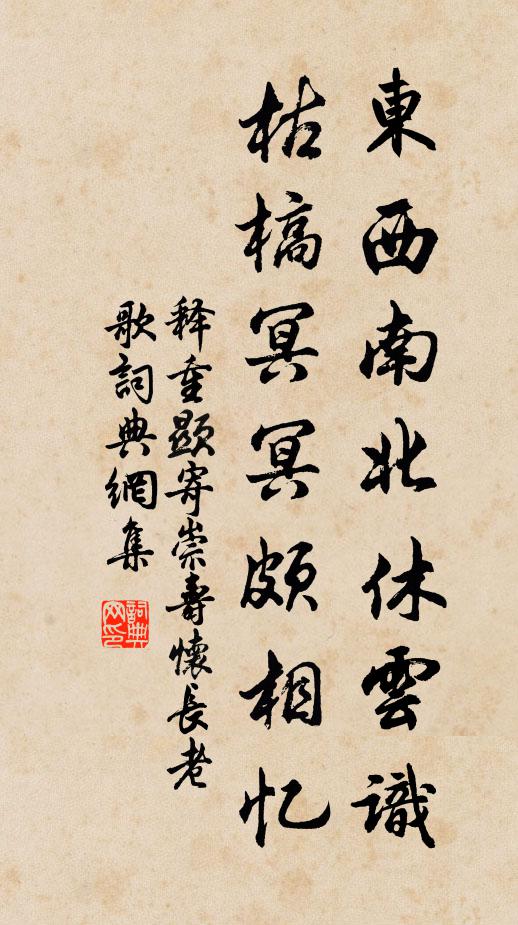 東西南北休雲識
枯槁冥冥頗相忆
釋重顯寄崇壽懷長老
歌詞典網集
詞典
网印